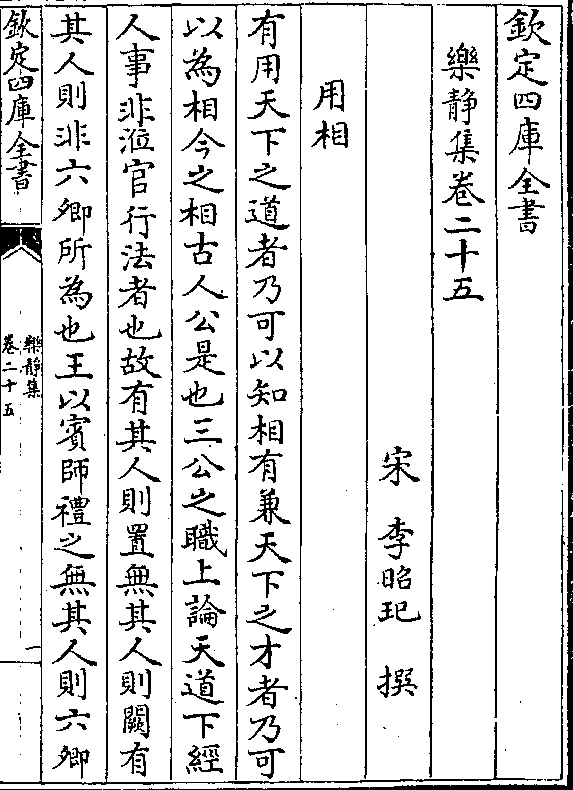 欽定四庫全書
樂靜集卷二十五
宋 李昭玘 撰
用相
有用天下之道者乃可以知相有兼天下之才者乃可
以為相今之相古人公是也三公之職上論天道下經
人事非涖官行法者也故有其人則置無其人則闕有
其人則非六卿所為也王以賓師禮之無其人則六卿
欽定四庫全書
樂靜集
卷二十五
一